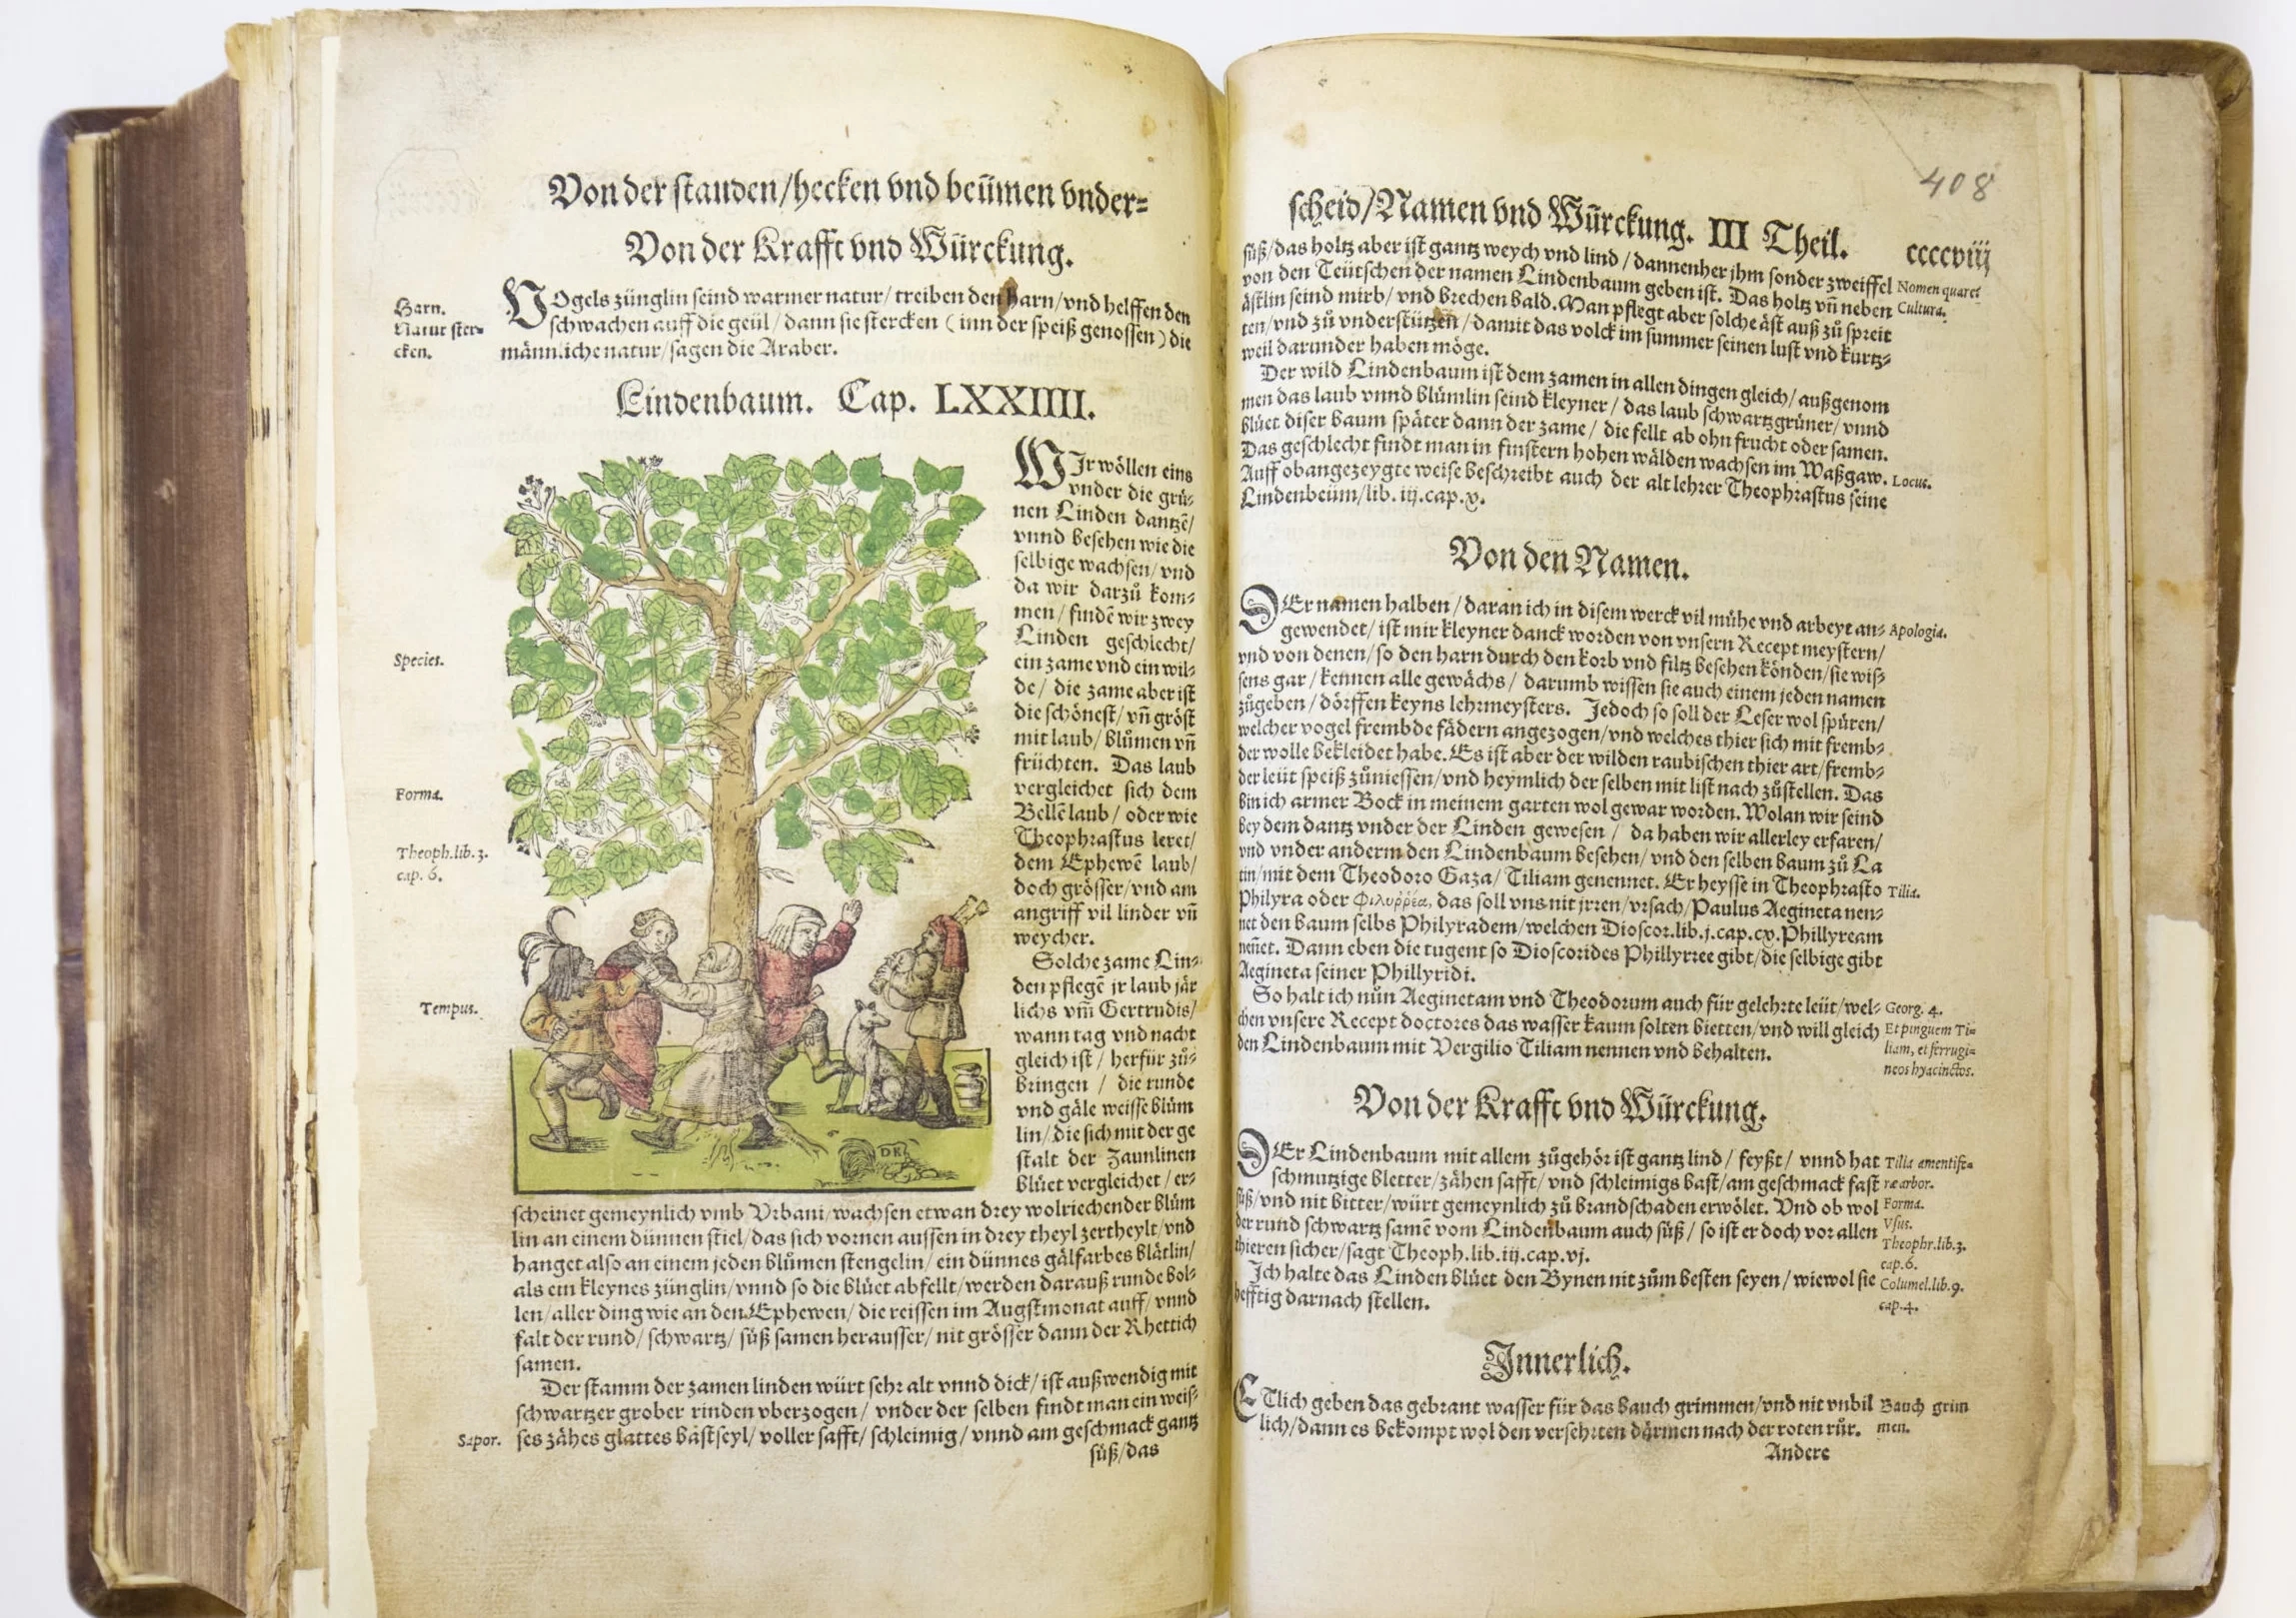 Von der stauden/hecken vnd beümen vnder-
Von der Krafft vnd Würckung.
Harn.
Natur ster-
cken.
VOgels zünglin seind warmer natur/ treiben den harn/vnd helffen den
schwachen auff die geül/ dann sie stercken (inn der speiß genossen) die
männliche natur/sagen die Araber.
Lindenbaum. Cap. LXXIIII.
WIr wöllen eins
vnder die grü-
nen Linden dantzē/
vnnd besehen wie die
selbige wachsen/ vnd
da wir darzů kom-
men/ findē wir zwey
Linden geschlecht/
Species.
ein zame vnd ein wil-
de/ die zame aber ist
die schönest/ vñ gröst
mit laub/ blůmen vñ
früchten. Das laub
Forma.
vergleichet sich dem
Bellē laub/ oder wie
Theophrastus leret/
Theoph.lib.3.
cap. 6.
dem Ephewē laub/
doch grösser/vnd am
angriff vil linder vñ
weycher.
Solche zame Lin-
den pflegē jr laub jär
Tempus.
lichs vm̃ Gertrudis/
wann tag vnd nacht
gleich ist/ herfür zů-
bringen/ die runde
vnd gäle weisse blüm
lin/ die sich mit der ge
stalt der Zaunlinen
blüet vergleichet/ er-
DK
scheinet gemeynlich vmb Vrbani/wachsen etwan drey wolriechender blüm
lin an einem dünnen stiel/das sich vornen aussen in drey theyl zertheylt/vnd
hanget also an einem jeden blůmen stengelin/ ein dünnes gälfarbes blätlin/
als ein kleynes zünglin/vnnd so die blüet abfellt/werden darauß runde bol-
len/aller ding wie an den Ephewen/ die reissen im Augstmonat auff/ vnnd
falt der rund/ schwartz/ süß samen herausser/ nit grösser dann der Rhettich
samen.
Der stamm der zamen linden würt sehr alt vnnd dick/ ist außwendig mit
schwartzer grober rinden vberzogen/ vnder der selben findt man ein weis-
Sapor.
ses zähes glattes bastseyl/ voller safft/ schleimig/ vnnd am geschmack gantz
süß/das
408
scheid/Namen vnd Würckung. III Theil.
ccccviij
süß/das holtz aber ist gantz weych vnd lind/ dannenher jhm sonder zweiffel
von den Teütschen der namen Lindenbaum geben ist. Das holtz vñ neben
Nomen quare?
ästlin seind mirb/ vnd brechen bald. Man pflegt aber solche äst auß zů spreit
Cultura.
ten/vnd zů vnderstützen/damit das volck im summer seinen lust vnd kurtz-
weil darunder haben möge.
Der wild Lindenbaum ist dem zamen in allen dingen gleich/ außgenom
men das laub vnnd blümlin seind kleyner/ das laub schwartzgrüner/ vnnd
blüet diser baum später dann der zame/ die fellt ab ohn frucht oder samen.
Das geschlecht findt man in finstern hohen wälden wachsen im Waßgaw.
Locus.
Auff obangezeygte weise beschreibt auch der alt lehrer Theophrastus seine
Lindenbeüm/lib. iij.cap.x.
Von den Namen.
DEr namen halben/ daran ich in disem werck vil mühe vnd arbeyt an-
Apologia.
gewendet/ ist mir kleyner danck worden von vnsern Recept meystern/
vnd von denen/so den harn durch den korb vnd filtz besehen könden/sie wis-
sens gar/ kennen alle gewächs/ darumb wissen sie auch einem jeden namen
zůgeben/ dörffen keyns lehrmeysters. Jedoch so soll der Leser wol spüren/
welcher vogel frembde fädern angezogen/vnd welches thier sich mit fremb-
der wolle bekleidet habe. Es ist aber der wilden raubischen thier art/fremb-
der leüt speiß zůniessen/vnd heymlich der selben mit list nach zůstellen. Das
bin ich armer Bock in meinem garten wol gewar worden. Wolan wir seind
bey dem dantz vnder der Linden gewesen/ da haben wir allerley erfaren/
vnd vnder anderm den Lindenbaum besehen/ vnd den selben baum zů La
tin/mit dem Theodoro Gaza/ Tiliam genennet. Er heysse in Theophrasto
Tilia.
Philyra oder Φιλυρρέα, das soll vns nit jrren/vrsach/Paulus Aegineta nen-
net den baum selbs Philyradem/welchen Dioscor.lib.j.cap.cx.Phillyream
neñet. Dann eben die tugent so Dioscorides Phillyrree gibt/die selbige gibt
Aegineta seiner Phillyridi.
So halt ich nůn Aeginetam vnd Theodorum auch für gelehrte leüt/wel-
Georg. 4.
chen vnsere Recept doctores das wasser kaum solten bietten/vnd will gleich
Et pinguem Ti-
den Lindenbaum mit Vergilio Tiliam nennen vnd behalten.
liam, et ferrugi-
neos hyacinctos.
Von der Krafft vnd Würckung.
DEr Lindenbaum mit allem zůgehör ist gantz lind/ feyßt/ vnnd hat
Tilia amentife-
schmutzige bletter/zähen safft/ vnd schleimigs bast/am geschmack fast
ræ arbor.
süß/vnd nit bitter/würt gemeynlich zů brandschaden erwölet. Vnd ob wol
Forma.
der rund schwartz samē vom Lindenbaum auch süß/ so ist er doch vor allen
Vsus.
thieren sicher/sagt Theoph.lib.iij.cap.vj.
Theophr.lib.3.
cap.6.
Ich halte das Linden blüet den Bynen nit zům besten seyen/ wiewol sie
Columel.lib.9.
hefftig darnach stellen.
cap.4.
Innerlich.
ETlich geben das gebrant wasser für das bauch grimmen/vnd nit vnbil
Bauch grim
lich/dann es bekompt wol den versehrten därmen nach der roten růr.
men.
Andere